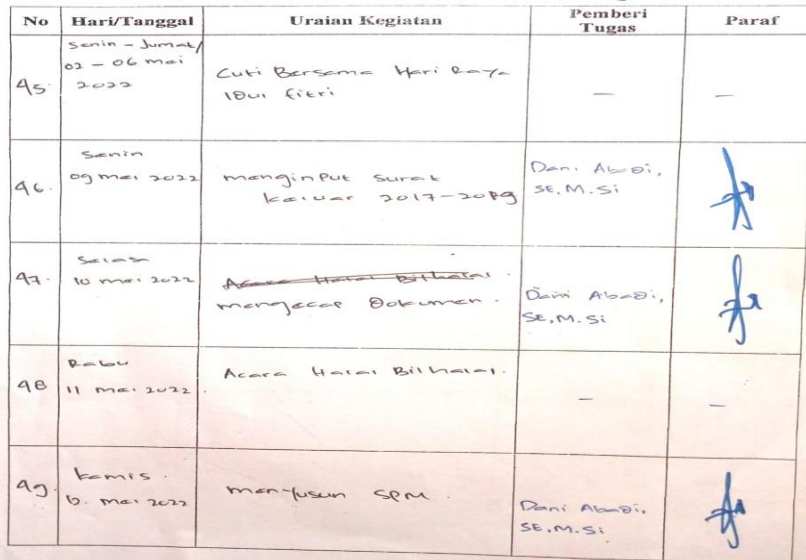 No Hari/Tanggal Uraian Kegiatan Pemberi Tugas Paraf
45. Senin - Jumat/
02 - 06 mei
2022
Cuti Bersama Hari Raya
Idul Fitri
— —
46. Senin
09 mei 2022
menginput surat
keluar 2017-2019
Dani Abadi,
SE, M.Si
47. Selasa
10 mei 2022
Acara Halal Bilhalal.
mengecap Dokumen.
Dani Abadi,
SE, M.Si
48 Rabu
11 mei 2022.
Acara Halal Bilhalal.
— —
49. Kamis.
mei 2022
menyusun SPM.
Dani Abadi,
SE, M.Si